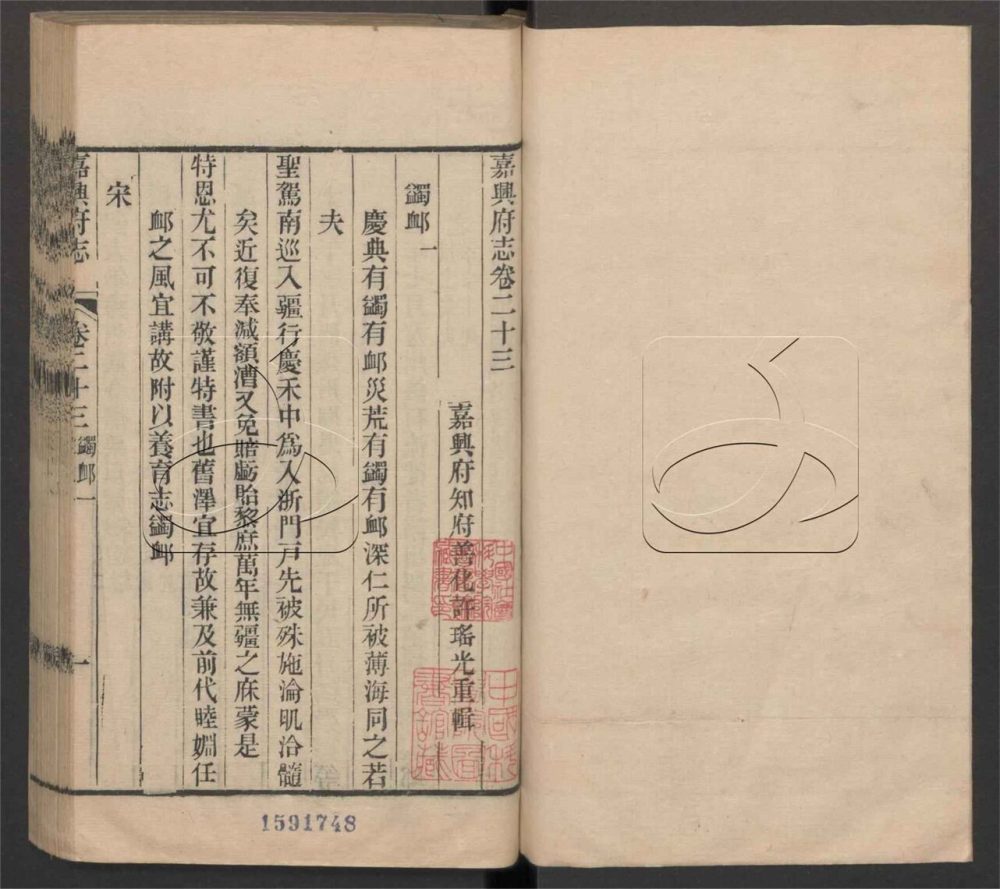 嘉興府志卷二十三
嘉興府知府善化許瑤光重輯
蠲卹一
慶典有蠲有卹災荒有蠲有卹深仁所被薄海同之若
夫
聖駕南巡入疆行慶禾中爲入浙門戸先被殊施淪肌洽髓
矣近復奉減額漕又免賠虧貽黎庶萬年無疆之庥蒙是
特恩尤不可不敬謹特書也舊澤宜存故兼及前代睦婣任
卹之風宜講故附以養育志蠲卹
宋
嘉興府志
卷二十三
蠲卹一
一
1591748